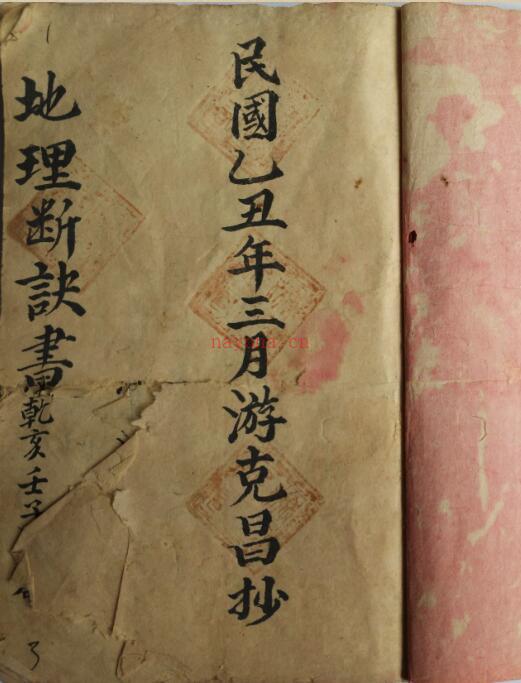 民國乙丑年三月游克昌抄
地理断訣書
乾亥壬子
nayona.cn